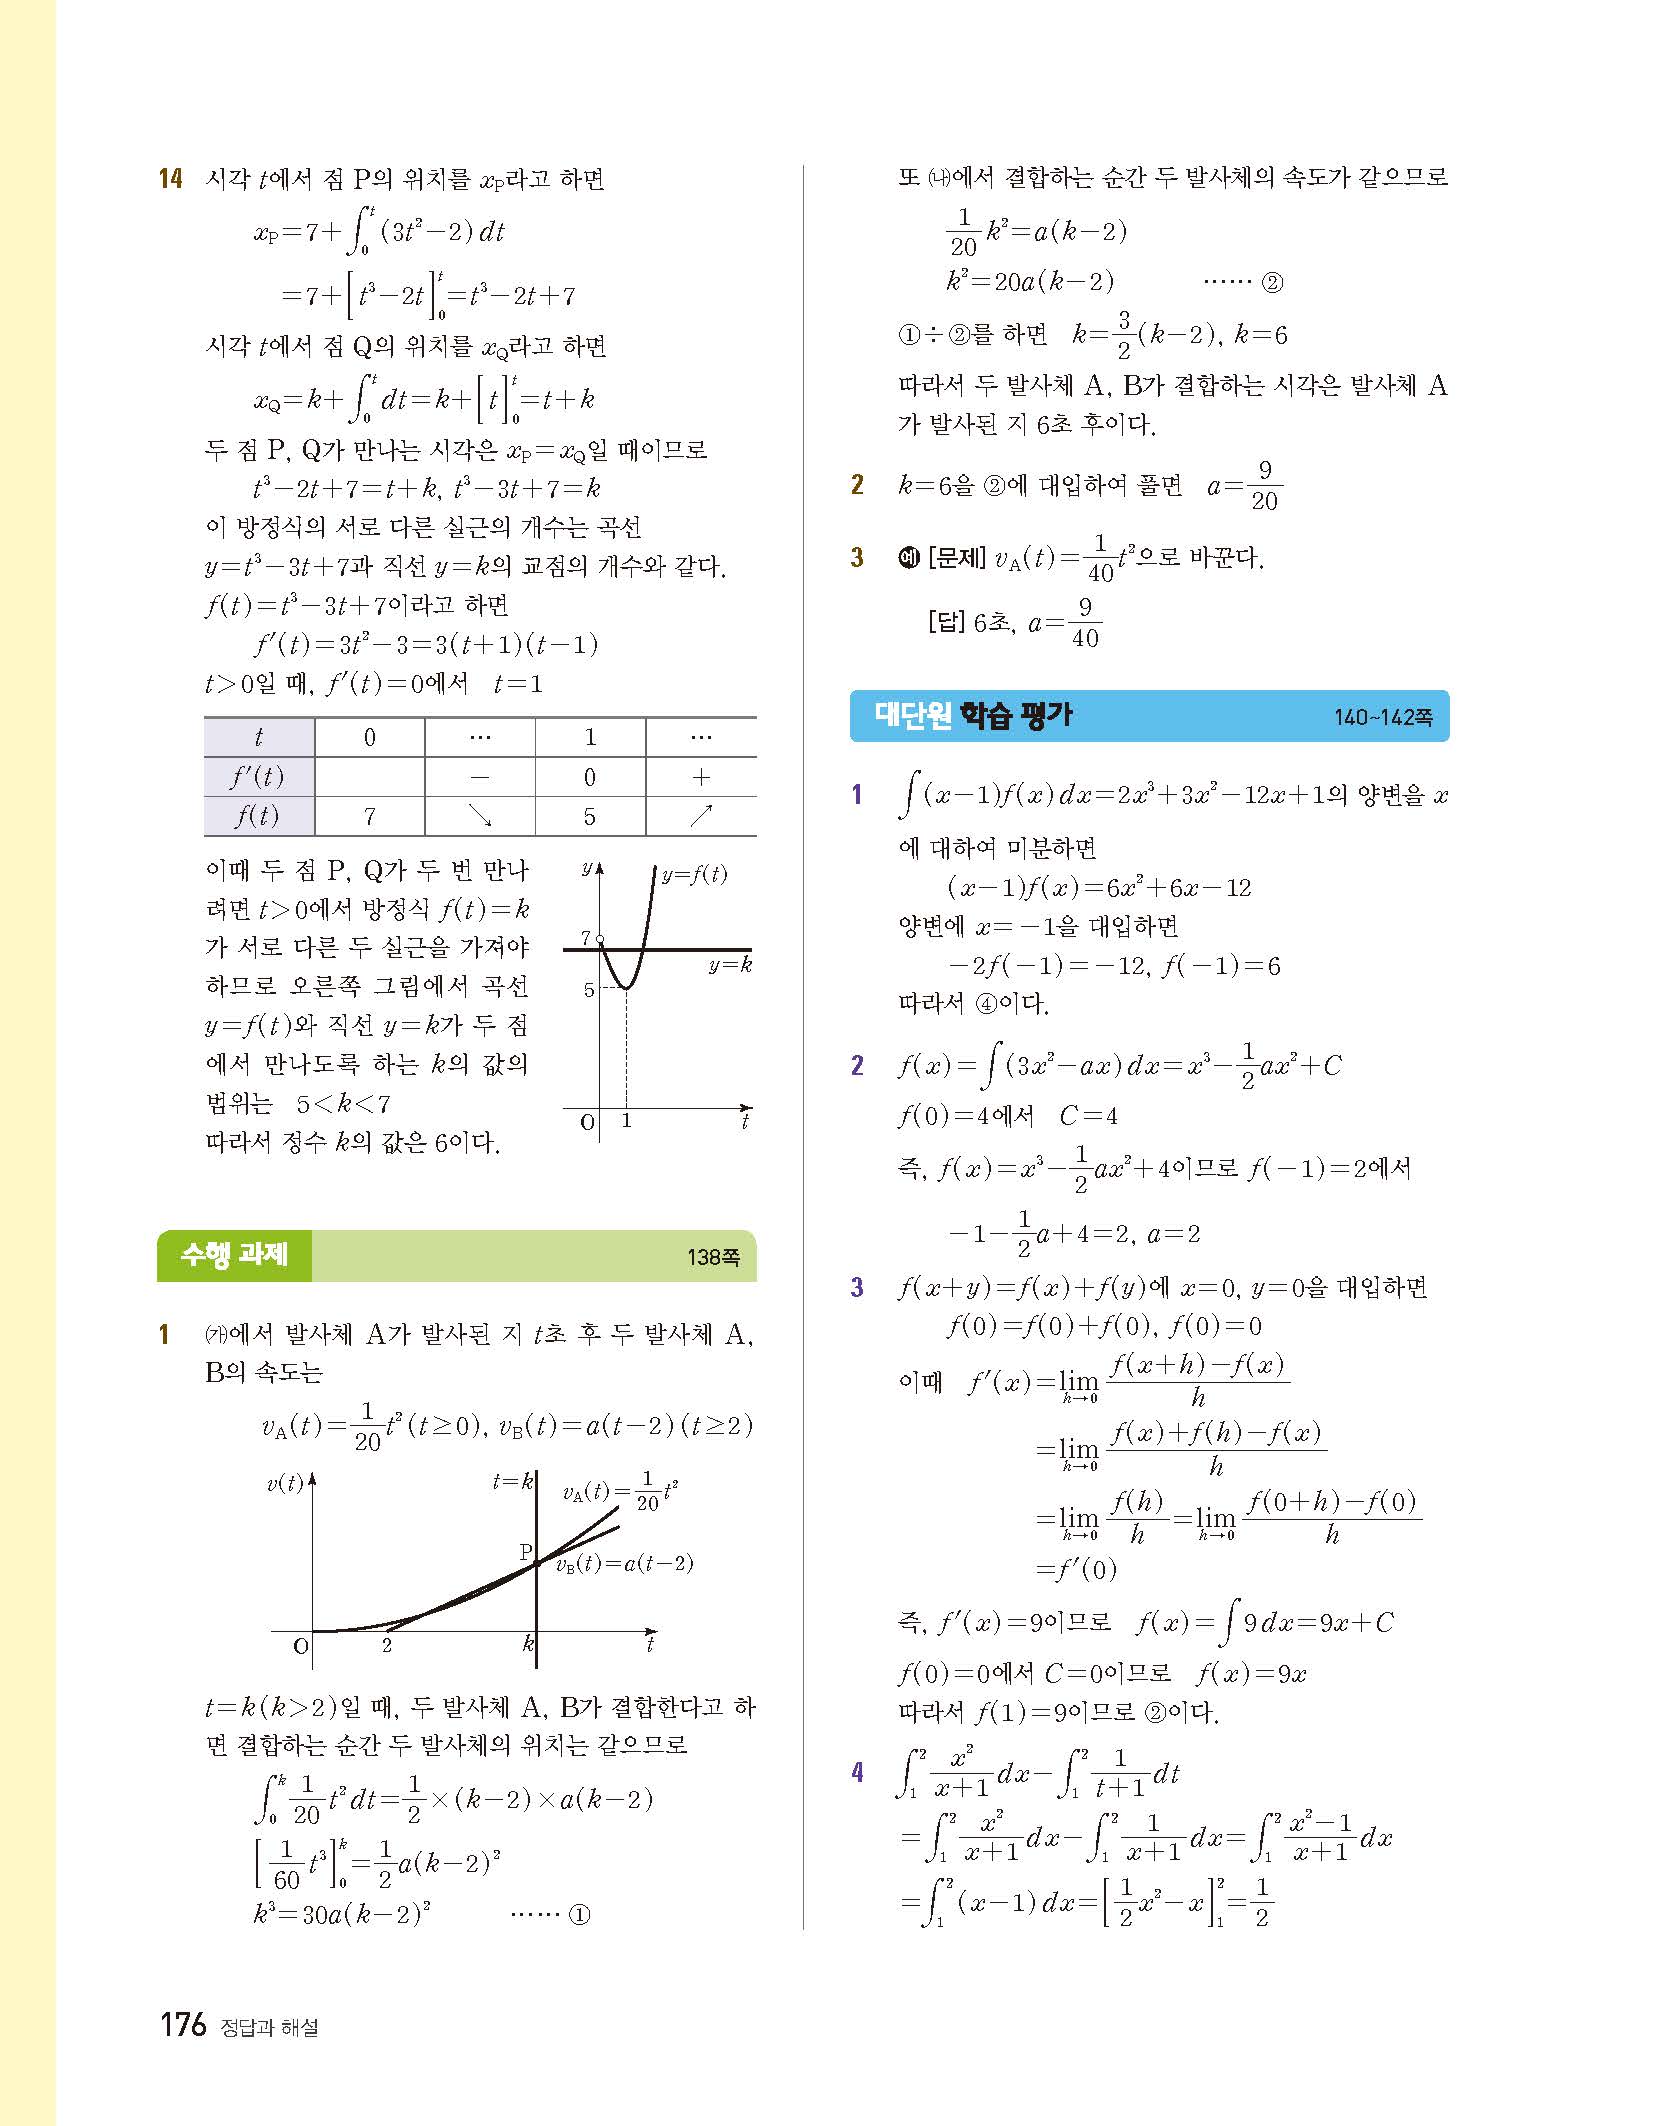 14 시각 t에서 점 P의 위치를 x_P라고 하면
x_P=7+∫_0^t (3t²-2)dt
=7+[t³-2t]_0^t=t³-2t+7
시각 t에서 점 Q의 위치를 x_Q라고 하면
x_Q=k+∫_0^t dt=k+[t]_0^t=t+k
두 점 P, Q가 만나는 시각은 x_P=x_Q일 때이므로
t³-2t+7=t+k, t³-3t+7=k
이 방정식의 서로 다른 실근의 개수는 곡선
y=t³-3t+7과 직선 y=k의 교점의 개수와 같다.
f(t)=t³-3t+7이라고 하면
f′(t)=3t²-3=3(t+1)(t-1)
t>0일 때, f′(t)=0에서 t=1
t 0 … 1 …
f′(t) - 0 +
f(t) 7 ↘ 5 ↗
이때 두 점 P, Q가 두 번 만나
려면 t>0에서 방정식 f(t)=k
가 서로 다른 두 실근을 가져야
하므로 오른쪽 그림에서 곡선
y=f(t)와 직선 y=k가 두 점
에서 만나도록 하는 k의 값의
범위는 5<k<7
따라서 정수 k의 값은 6이다.
y
y=f(t)
7
y=k
5
O 1 t
수행 과제 138쪽
1 ㈎에서 발사체 A가 발사된 지 t초 후 두 발사체 A,
B의 속도는
v_A(t)=1/20 t²(t≥0), v_B(t)=a(t-2)(t≥2)
v(t)
t=k
v_A(t)=1/20 t²
P
v_B(t)=a(t-2)
O 2 k t
t=k(k>2)일 때, 두 발사체 A, B가 결합한다고 하
면 결합하는 순간 두 발사체의 위치는 같으므로
∫_0^k 1/20 t² dt=1/2×(k-2)×a(k-2)
[1/60 t³]_0^k=1/2 a(k-2)²
k³=30a(k-2)² …… ①
또 ㈏에서 결합하는 순간 두 발사체의 속도가 같으므로
1/20 k²=a(k-2)
k²=20a(k-2) …… ②
①÷②를 하면 k=3/2(k-2), k=6
따라서 두 발사체 A, B가 결합하는 시각은 발사체 A
가 발사된 지 6초 후이다.
2 k=6을 ②에 대입하여 풀면 a=9/20
3 예 [문제] v_A(t)=1/40 t²으로 바꾼다.
[답] 6초, a=9/40
대단원 학습 평가 140~142쪽
1 ∫(x-1)f(x)dx=2x³+3x²-12x+1의 양변을 x
에 대하여 미분하면
(x-1)f(x)=6x²+6x-12
양변에 x=-1을 대입하면
-2f(-1)=-12, f(-1)=6
따라서 ④이다.
2 f(x)=∫(3x²-ax)dx=x³-1/2 ax²+C
f(0)=4에서 C=4
즉, f(x)=x³-1/2 ax²+4이므로 f(-1)=2에서
-1-1/2 a+4=2, a=2
3 f(x+y)=f(x)+f(y)에 x=0, y=0을 대입하면
f(0)=f(0)+f(0), f(0)=0
이때 f′(x)=lim_{h→0} (f(x+h)-f(x))/h
=lim_{h→0} (f(x)+f(h)-f(x))/h
=lim_{h→0} f(h)/h=lim_{h→0} (f(0+h)-f(0))/h
=f′(0)
즉, f′(x)=9이므로 f(x)=∫9dx=9x+C
f(0)=0에서 C=0이므로 f(x)=9x
따라서 f(1)=9이므로 ②이다.
4 ∫_1^2 x²/(x+1) dx-∫_1^2 1/(t+1) dt
=∫_1^2 x²/(x+1) dx-∫_1^2 1/(x+1) dx=∫_1^2 (x²-1)/(x+1) dx
=∫_1^2 (x-1)dx=[1/2 x²-x]_1^2=1/2
176 정답과 해설